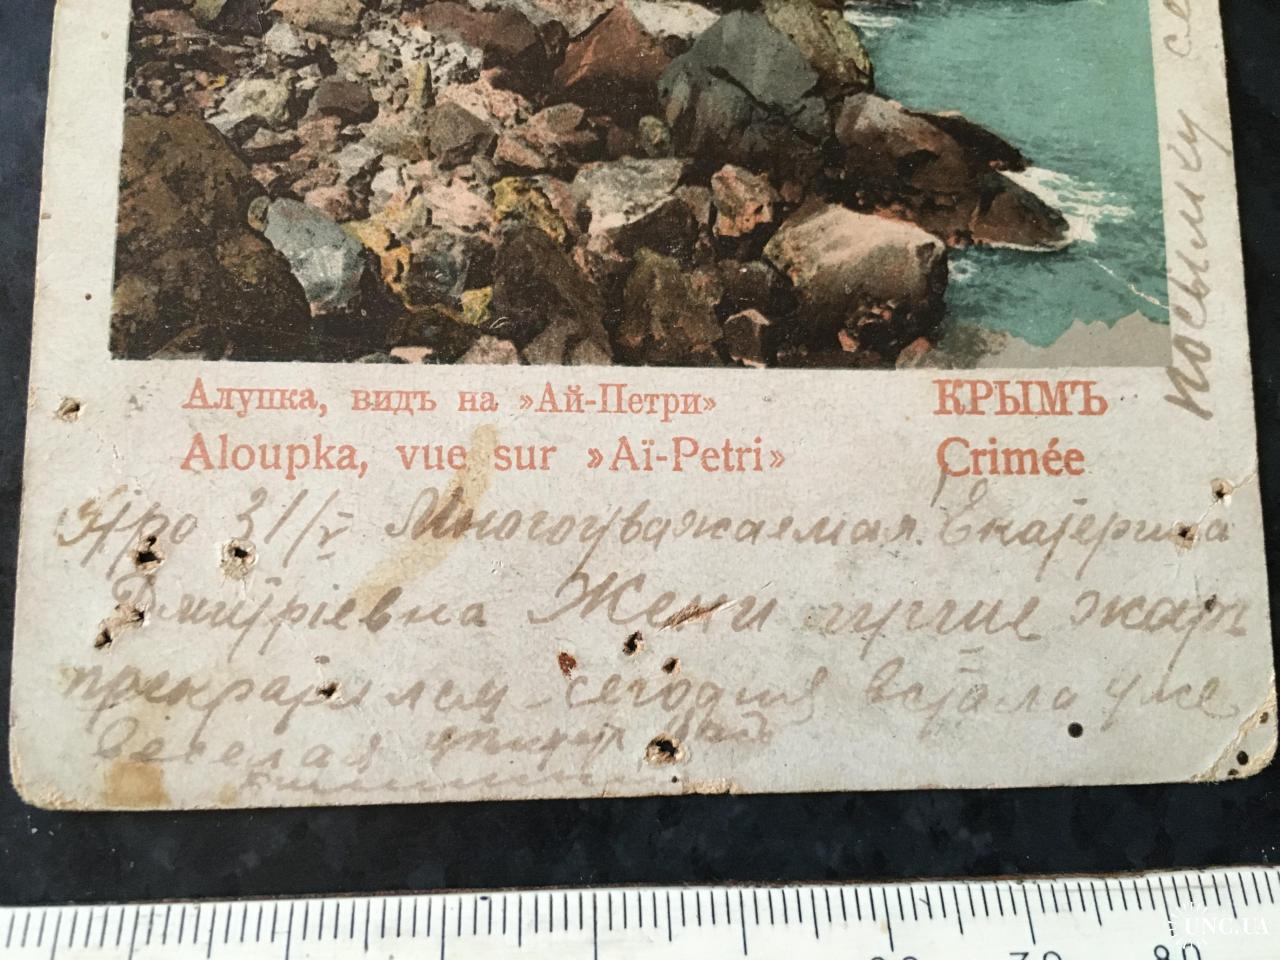 Алупка, видъ на »Ай-Петри»
КРЫМЪ
Aloupka, vue sur »Aï-Petri»
Crimée
Утро 31/V Многоуважаемая Екатерина
Дмитріевна Жени лучше жаръ
прекратился сегодня встала уже
веселая
посылку
UNC.UA
70
80